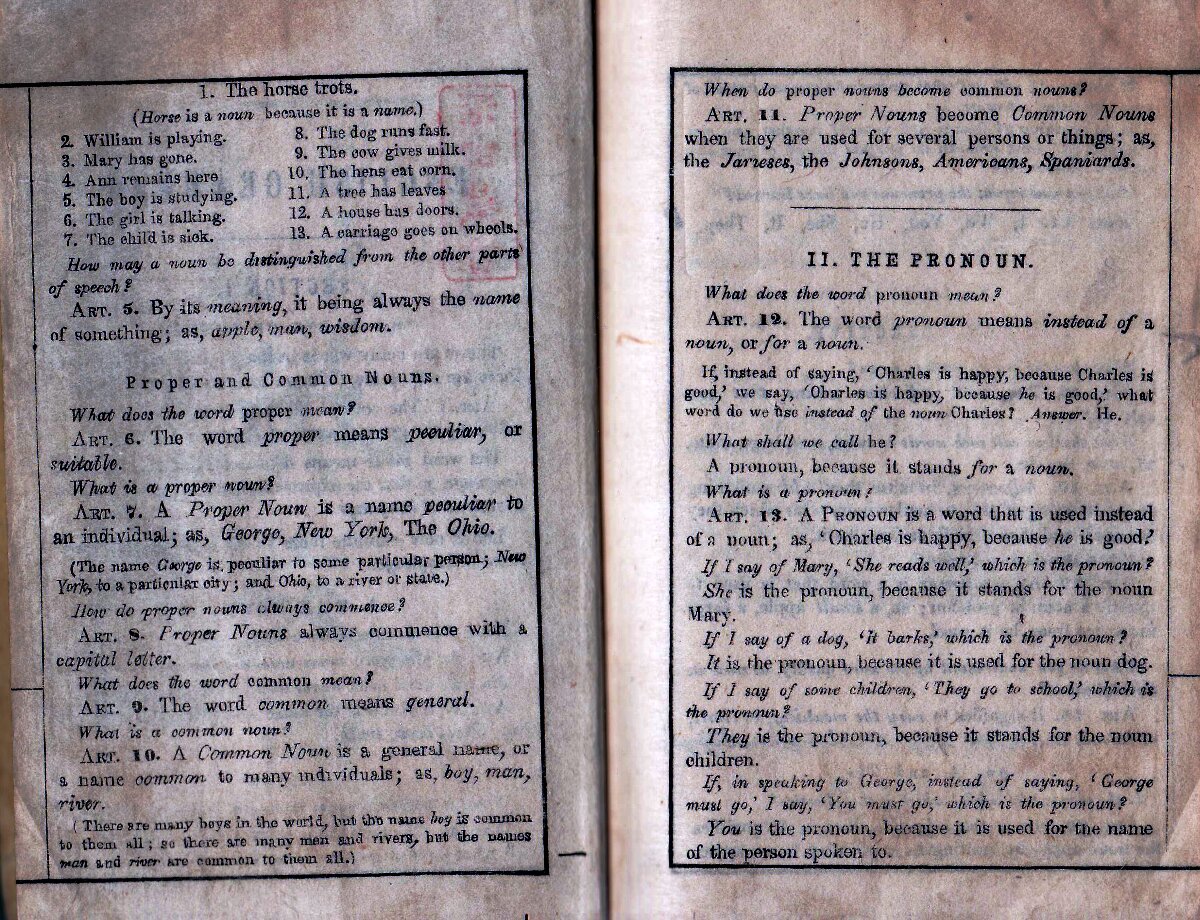 1. The horse trots.
(Horse is a noun because it is a name.)
2. William is playing.
3. Mary has gone.
4. Ann remains here
5. The boy is studying.
6. The girl is talking.
7. The child is sick.
8. The dog runs fast.
9. The cow gives milk.
10. The hens eat corn.
11. A tree has leaves
12. A house has doors.
13. A carriage goes on wheels.
How may a noun be distinguished from the other parts
of speech?
ART. 5. By its meaning, it being always the name
of something; as, apple, man, wisdom.
Proper and Common Nouns.
What does the word proper mean?
ART. 6. The word proper means peculiar, or
suitable.
What is a proper noun?
ART. 7. A Proper Noun is a name peculiar to
an individual; as, George, New York, The Ohio.
(The name George is peculiar to some particular person; New
York, to a particular city; and Ohio, to a river or state.)
How do proper nouns always commence?
ART. 8. Proper Nouns always commence with a
capital letter.
What does the word common mean?
ART. 9. The word common means general.
What is a common noun?
ART. 10. A Common Noun is a general name, or
a name common to many individuals; as, boy, man,
river.
(There are many boys in the world, but the name boy is common
to them all; so there are many men and rivers, but the names
man and river are common to them all.)
When do proper nouns become common nouns?
ART. 11. Proper Nouns become Common Nouns
when they are used for several persons or things; as,
the Jameses, the Johnsons, Americans, Spaniards.
II. THE PRONOUN.
What does the word pronoun mean?
ART. 12. The word pronoun means instead of a
noun, or for a noun.
If, instead of saying, 'Charles is happy, because Charles is
good,' we say, 'Charles is happy, because he is good,' what
word do we use instead of the noun Charles? Answer. He.
What shall we call he?
A pronoun, because it stands for a noun.
What is a pronoun?
ART. 13. A PRONOUN is a word that is used instead
of a noun; as, 'Charles is happy, because he is good.'
If I say of Mary, 'She reads well,' which is the pronoun?
She is the pronoun, because it stands for the noun
Mary.
If I say of a dog, 'It barks,' which is the pronoun?
It is the pronoun, because it is used for the noun dog.
If I say of some children, 'They go to school,' which is
the pronoun?
They is the pronoun, because it stands for the noun
children.
If, in speaking to George, instead of saying, 'George
must go,' I say, 'You must go,' which is the pronoun?
You is the pronoun, because it is used for the name
of the person spoken to.